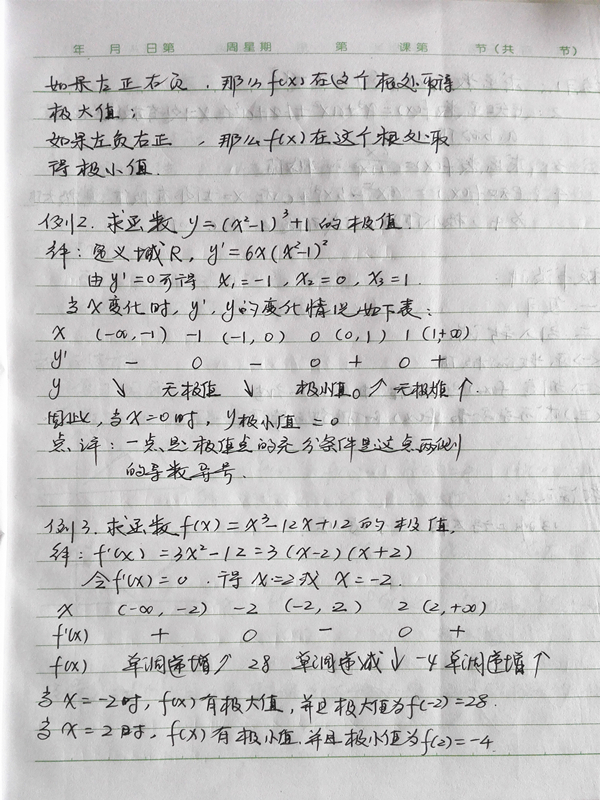 年 月 日第 周星期 第 课第 节(共 节)
如果左正右负，那么f(x)在这个根处取得
极大值；
如果左负右正，那么f(x)在这个根处取
得极小值.
例2. 求函数 y=(x²-1)³+1的极值.
解：定义域R，y'=6x(x²-1)²
由y'=0可得 x₁=-1，x₂=0，x₃=1.
当x变化时，y'，y的变化情况如下表：
x (-∞,-1) -1 (-1,0) 0 (0,1) 1 (1,+∞)
y' - 0 - 0 + 0 +
y ↘ 无极值 ↘ 极小值0 ↗ 无极值 ↑.
因此，当x=0时，y极小值=0
点评：一点是极值点的充分条件是这点两侧
的导数异号.
例3. 求函数f(x)=x³-12x+12的极值.
解：f'(x)=3x²-12=3(x-2)(x+2)
令f'(x)=0.得x=2或x=-2.
x (-∞,-2) -2 (-2,2) 2 (2,+∞)
f'(x) + 0 - 0 +
f(x) 单调递增↗ 28 单调递减↓ -4 单调递增↑
当x=-2时，f(x)有极大值，并且极大值为f(-2)=28.
当x=2时，f(x)有极小值.并且极小值为f(2)=-4.